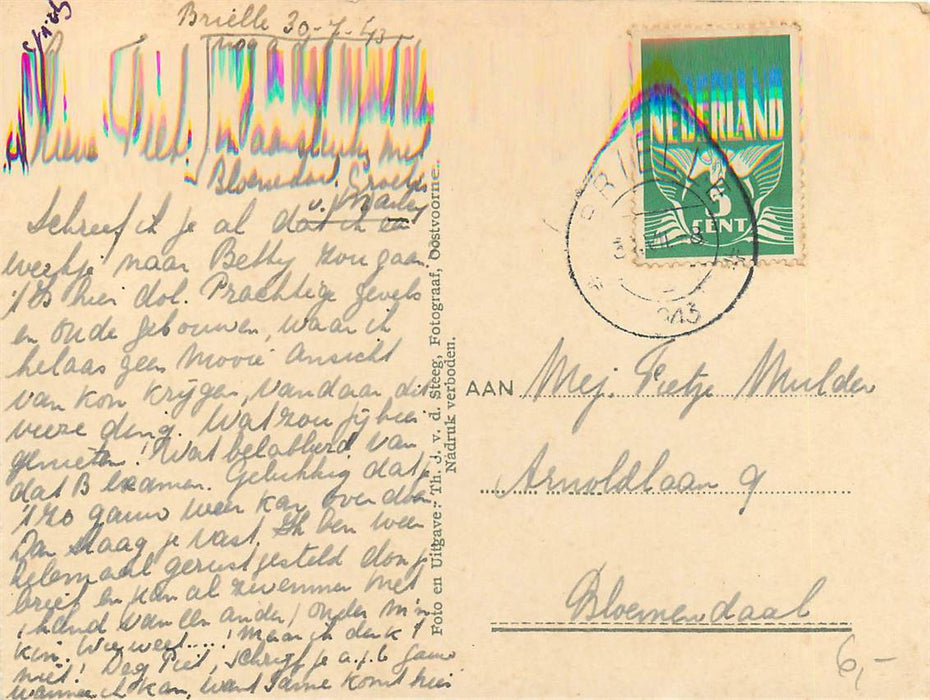 Brielle 30-7-43
Lieve Piet.
in aansluiting met
Bloemend. Groetjes
v. j. Marley
Schreef ik je al dat ik een
weekje naar Betty zou gaan.
't Is hier dol. Prachtige gevels
en oude gebouwen, waar ik
helaas geen mooie ansicht
van kon krijgen, vandaar dit
vieze ding. Wat zou jij hier
genieten! Wat belabberd van
dat B examen. Gelukkig dat je
't zo gauw weer kan over doen
Dan slaag je vast. Ik ben weer
helemaal gerustgesteld door je
brief en kan al zwemmen met
1 hand van een ander onder m'n
kin. Wie weet.....! Maar ik denk 't
niet! Dag Piet, schrijf je a.j.b. gauw
wanneer ik kan, want komt hier
Foto en Uitgave: Th. J. v. d. Steeg, Fotograaf, Oostvoorne.
Nadruk verboden.
NEDERLAND
3
CENT
BRIELLE
AAN Mej. Pietje Mulder
Arnoldlaan 9
Bloemendaal
6,-